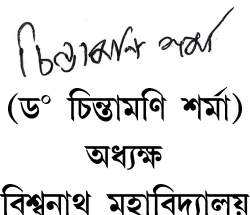 চিন্তামণি শৰ্মা
(ড° চিন্তামণি শৰ্মা)
অধ্যক্ষ
বিশ্বনাথ মহাবিদ্যালয়